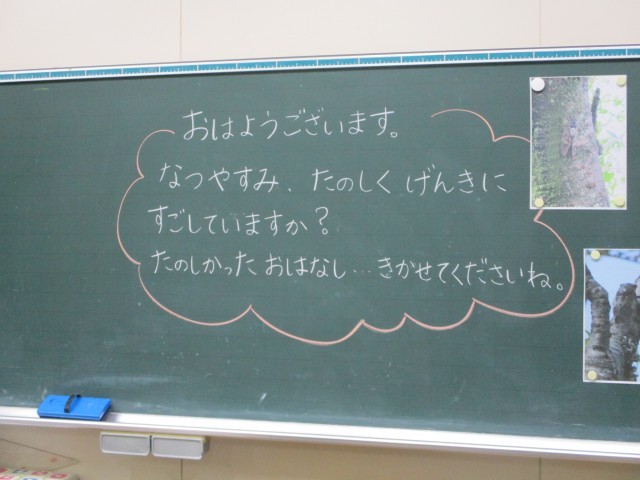 おはようございます。
なつやすみ、たのしく げんきに
すごしていますか?
たのしかった おはなし…きかせてくださいね。